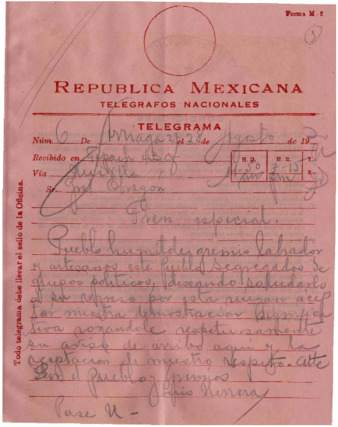 Forma M-2
REPUBLICA MEXICANA
TELEGRAFOS NACIONALES
TELEGRAMA
Núm. 6 De Arriaga el 28 de Agosto de 19
Recibido en
Vía
H. D. H. R. T.
4-30 pm 7-15 pm
Sr. Obregon
Tren especial.
Pueblo humilde gremio labrador
y artesanos este pueblo segregados de
grupos politicos, deseando saludarlo
a su regreso por esta
nuestra demostracion
rogandole respetuosamente
su aviso de arribo aqui y la
aceptacion de nuestro respeto. Atte
Por el pueblo y gremios
Luis Herrera
Pase U-
Todo telegrama debe llevar el sello de la Oficina.